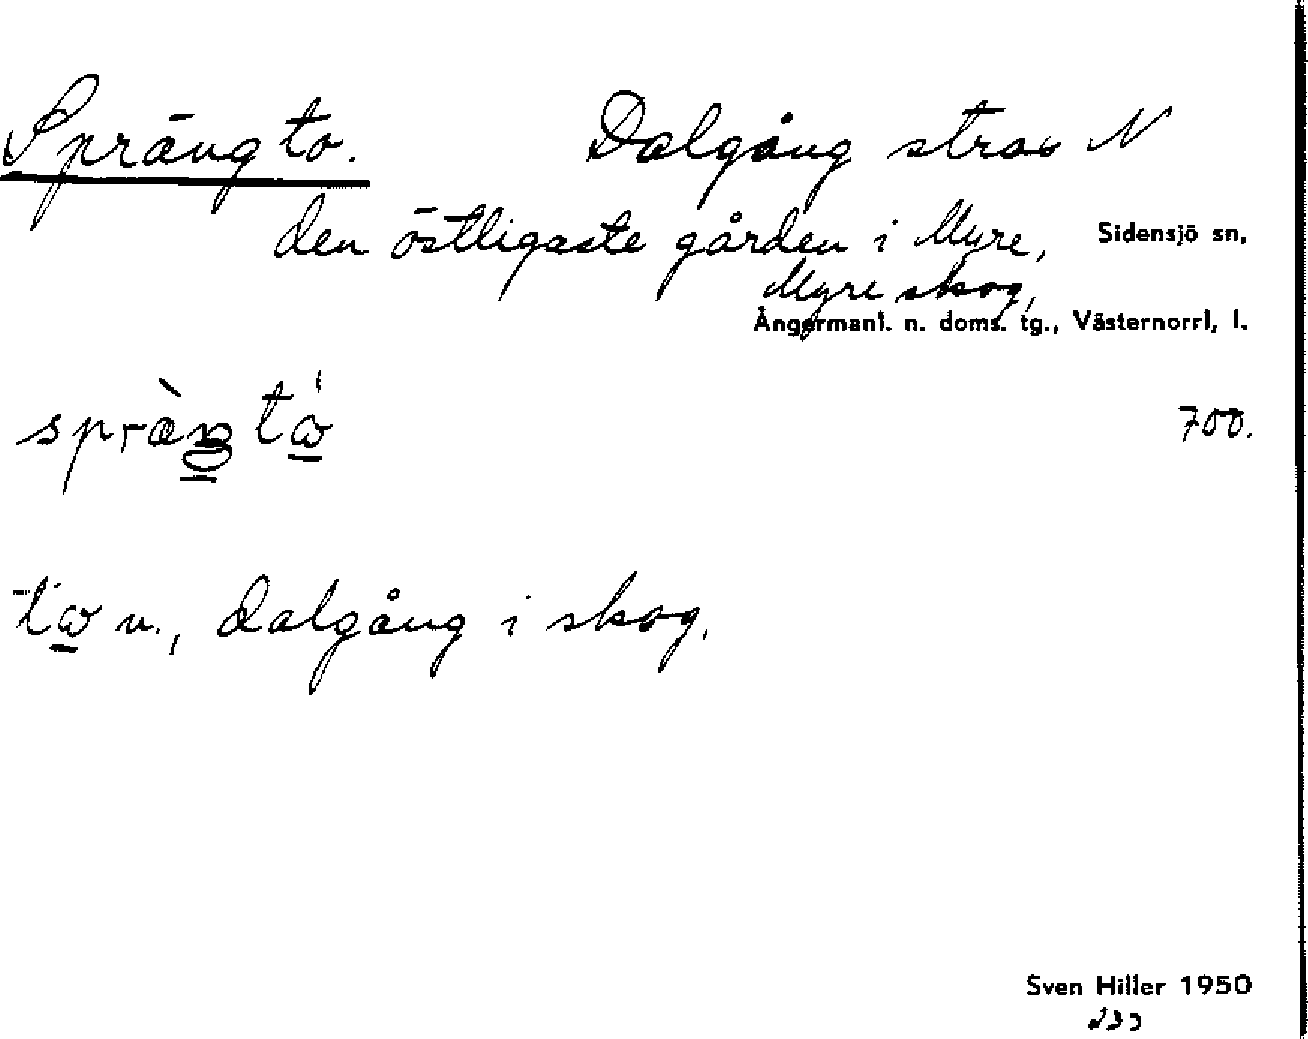 Sprängto. Dalgång strax N
den östligaste gården i Myre, Sidensjö sn,
Myre skog,
Ångermanl. n. doms. tg., Västernorrl, l.
700.
n., dalgång i skog.
Sven Hiller 1950